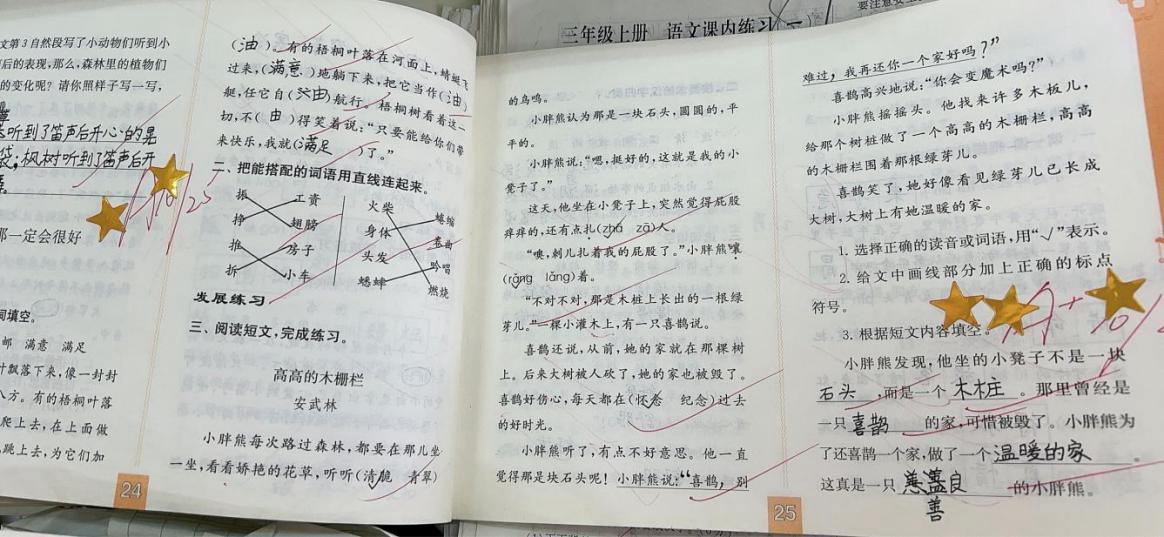 三年级上册 语文课内练习 一
文第3自然段写了小动物们听到小
后的表现,那么,森林里的植物们
的变化呢?请你照样子写一写,
听到了笛声后开心的晃
袋,枫树听到了笛声后开
那一定会很好
词填空。
邮 满意 满足
叶飘落下来,像一封封
八方。有的梧桐叶落
爬上去,在上面做
跳上去,为它们加
24
(油)。有的梧桐叶落在河面上,蜻蜓飞
过来,(满意)地躺下来,把它当作(油)
艇,任它自(由)航行。梧桐树看着这一
切,不(由)得笑着说:“只要能给你们带
来快乐,我就(满足)了。”
二、把能搭配的词语用直线连起来。
振 工资
挣 翅膀
推 房子
拆 小车
火柴 蜷缩
身体 卷曲
头发 吟唱
蟋蟀 燃烧
发展练习
三、阅读短文,完成练习。
高高的木栅栏
安武林
小胖熊每次路过森林,都要在那儿坐
一坐,看看娇艳的花草,听听(清脆 青翠)
的鸟鸣。
小胖熊认为那是一块石头,圆圆的,平
平的。
小胖熊说:“嗯,挺好的,这就是我的小
凳子了。”
这天,他坐在小凳子上,突然觉得屁股
痒痒的,还有点扎(zhā zā)人。
“噢,刺儿扎着我的屁股了。”小胖熊嚷
(rǎng lǎng)着。
“不对不对,那是木桩上长出的一根绿
芽儿。”一棵小灌木上,有一只喜鹊说。
喜鹊还说,从前,她的家就在那棵树
上。后来大树被人砍了,她的家也被毁了。
喜鹊好伤心,每天都在(怀卷 纪念)过去
的好时光。
小胖熊听了,有点不好意思。他一直
觉得那是块石头呢!小胖熊说:“喜鹊,别
25
难过,我再还你一个家好吗?”
喜鹊高兴地说:“你会变魔术吗?”
小胖熊摇摇头。他找来许多木板儿,
给那个树桩做了一个高高的木栅栏,高高
的木栅栏围着那根绿芽儿。
喜鹊笑了,她好像看见绿芽儿已长成
大树,大树上有她温暖的家。
1. 选择正确的读音或词语,用“√”表示。
2. 给文中画线部分加上正确的标点
符号。
3. 根据短文内容填空。
小胖熊发现,他坐的小凳子不是一块
石头,而是一个木桩。那里曾经是
一只喜鹊的家,可惜被毁了。小胖熊为
了还喜鹊一个家,做了一个温暖的家。
这真是一只善良的小胖熊。
善